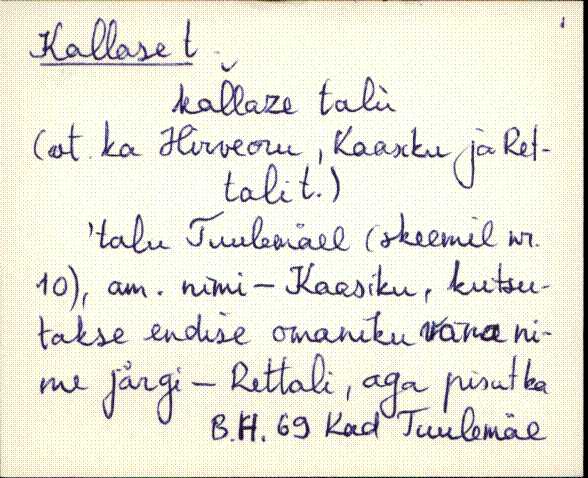 Kallase t.
kallaze talù
(vt. ka Hirveoru, Kaasiku ja Ret-
tali t.)
'talu Tuulemäel (skeemil nr.
10), am. nimi – Kaasiku, kutsu-
takse endise omaniku vana ni-
me järgi – Rettali, aga pisut ka
B.H. 69 Kad Tuulemäe